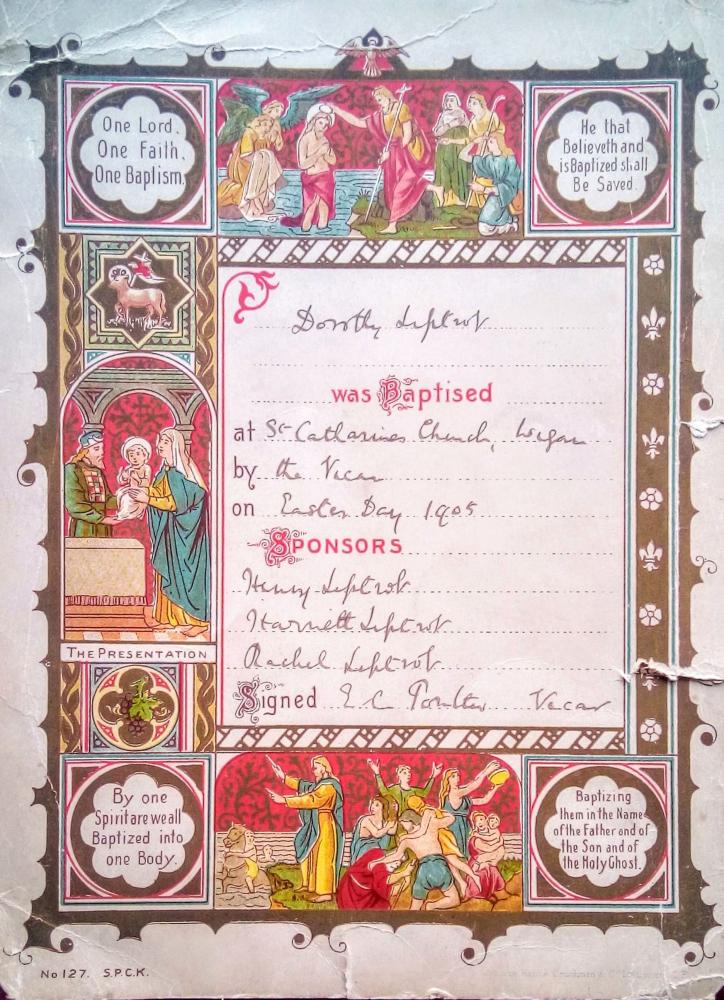 One Lord.
One Faith.
One Baptism.
He that
Believeth and
is Baptized shall
Be Saved.
Dorothy Leptrot
was Baptised
at St Catharines Church, Wigan
by the Vicar
on Easter Day 1905
SPONSORS
Henry Leptrot
Harriett Leptrot
Rachel Leptrot
Signed E C Poulter Vicar
THE PRESENTATION
By one
Spirit are we all
Baptized into
one Body.
Baptizing
them in the Name
of the Father and of
the Son and of
the Holy Ghost.
No 127. S.P.C.K.